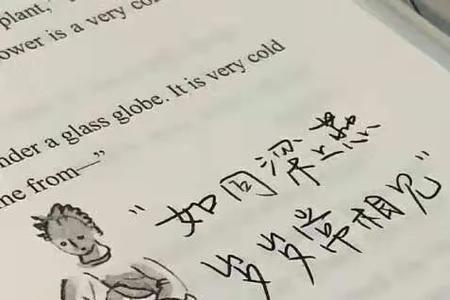 plant,"
ower is a very co
nder a glass globe. It is very cold
me from—”
“如同梁上燕
岁岁常相见”